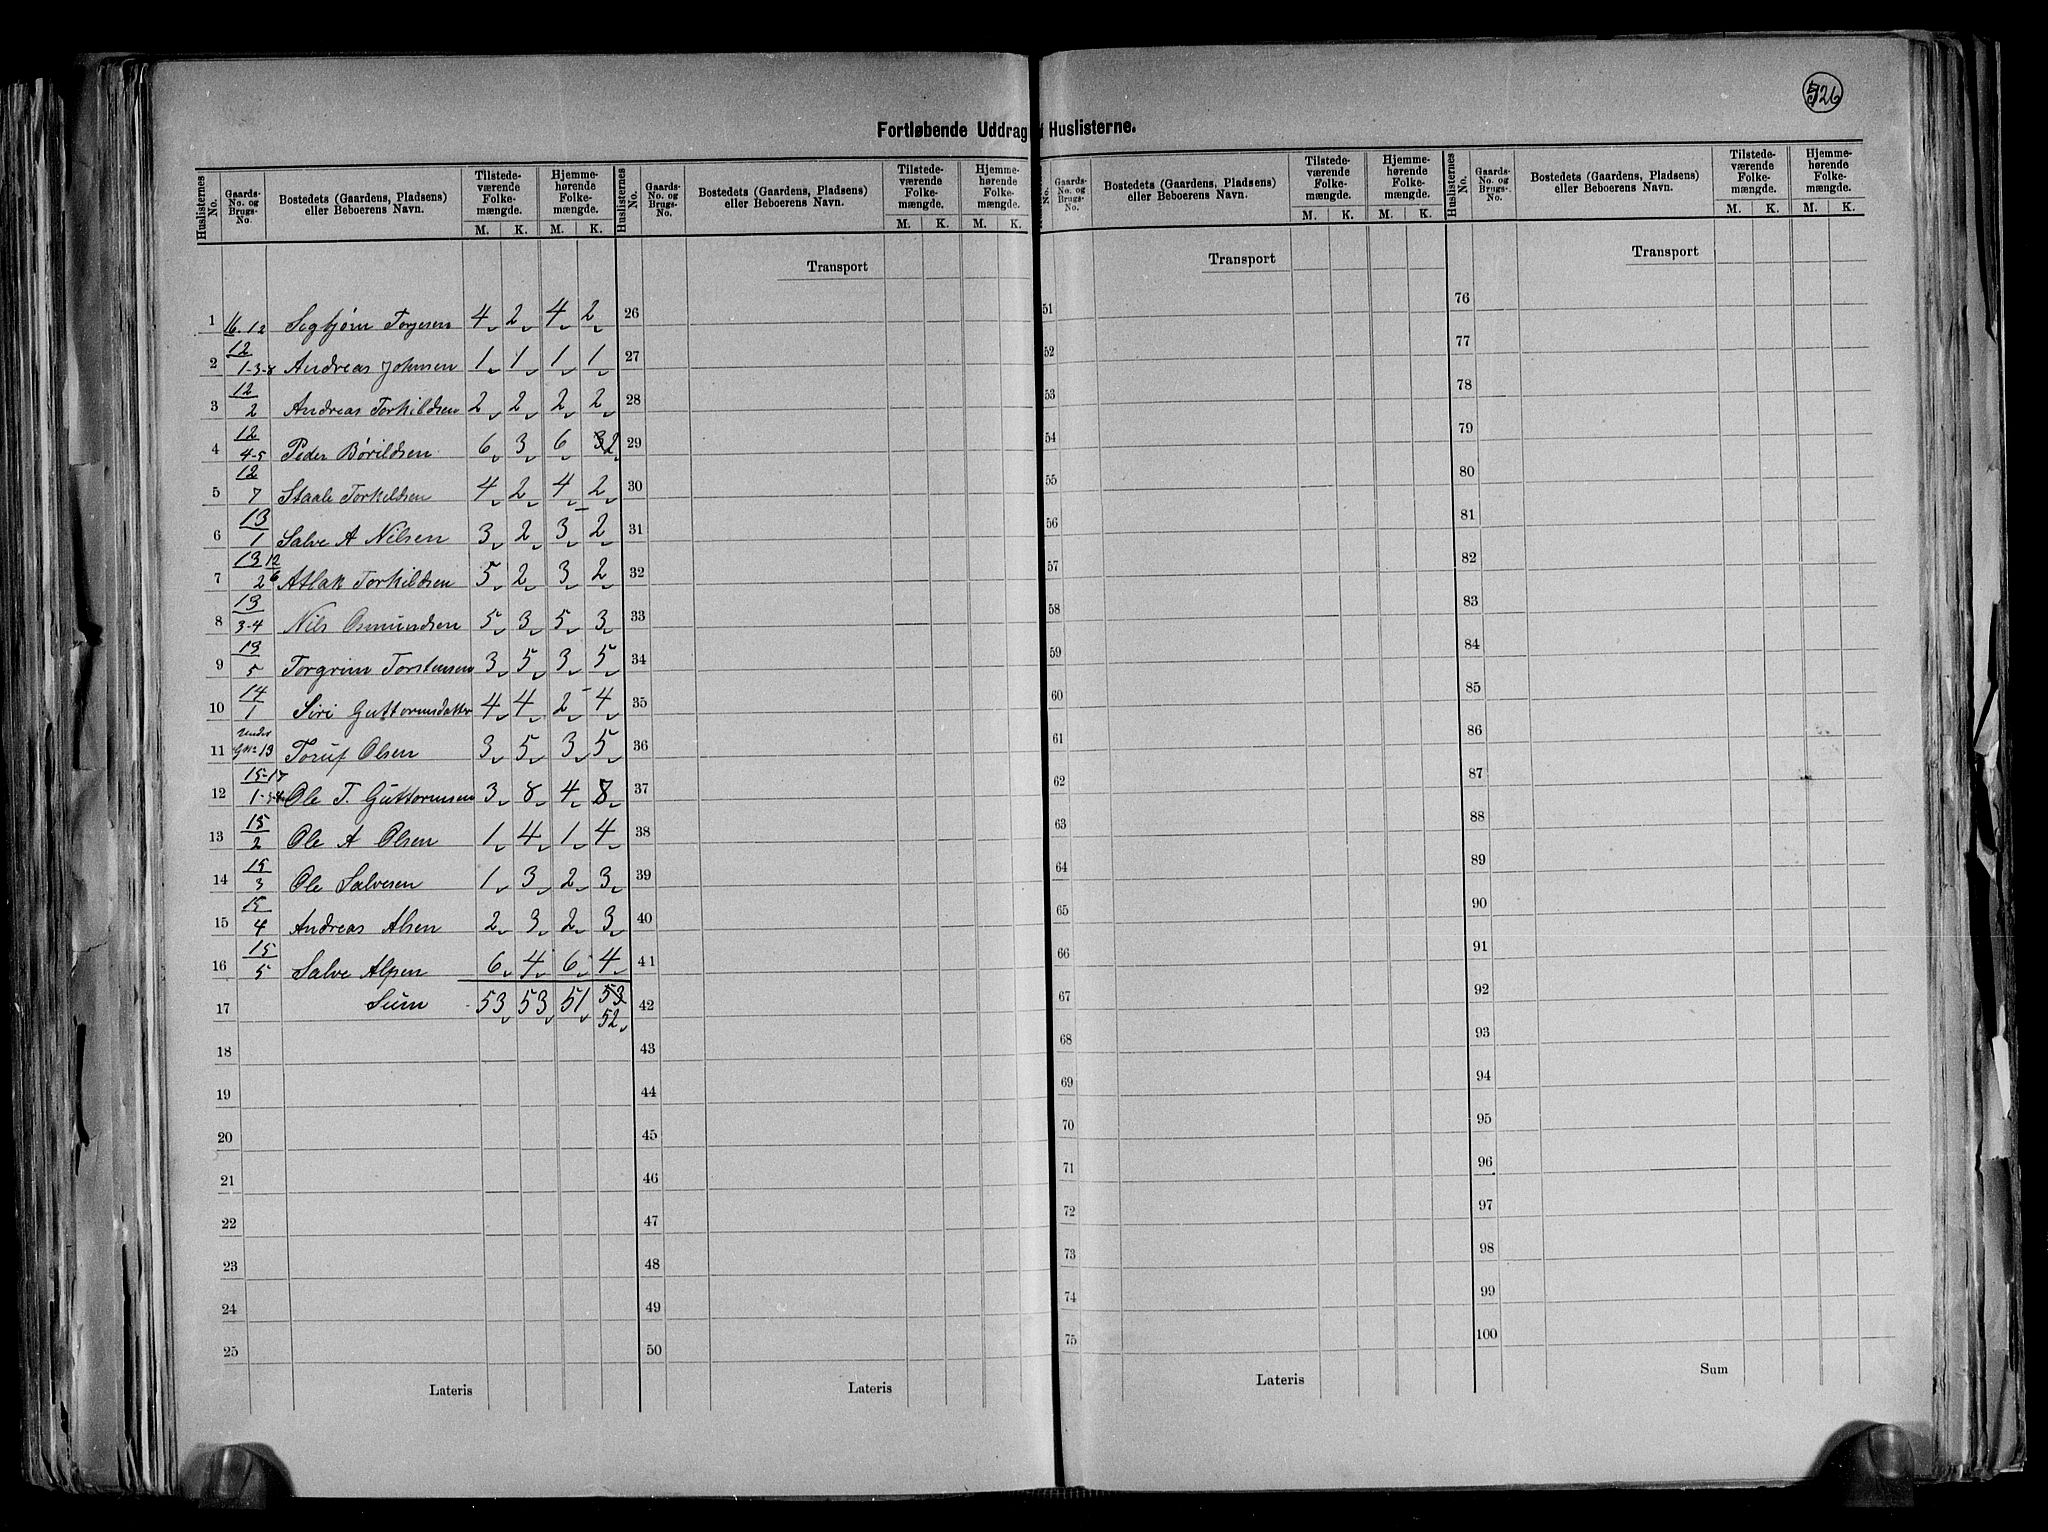 526
Fortløbende Uddrag af Huslisterne.
Huslisternes No. | Gaards-No. og Brugs-No. | Bostedets (Gaardens, Pladsens) eller Beboerens Navn. | Tilstedeværende Folkemængde. M. K. | Hjemmehørende Folkemængde. M. K.
Huslisternes No. | Gaards-No. og Brugs-No. | Bostedets (Gaardens, Pladsens) eller Beboerens Navn. | Tilstedeværende Folkemængde. M. K. | Hjemmehørende Folkemængde. M. K.
No. | Gaards-No. og Brugs-No. | Bostedets (Gaardens, Pladsens) eller Beboerens Navn. | Tilstedeværende Folkemængde. M. K. | Hjemmehørende Folkemængde. M. K.
Huslisternes No. | Gaards-No. og Brugs-No. | Bostedets (Gaardens, Pladsens) eller Beboerens Navn. | Tilstedeværende Folkemængde. M. K. | Hjemmehørende Folkemængde. M. K.
Transport Transport Transport
1 16. 12 Torjesen 4 2 4 2 26 51 76
2 12/1-3-8 Andreas Johnsen 1 1 1 1 27 52 77
3 12/2 Andreas Torkildsen 2 2 2 2 28 53 78
4 12/4-5 Peder Børildsen 6 3 6 3 2 29 54 79
5 12/7 Staale Torkildsen 4 2 4 2 30 55 80
6 13/1 Salve A Nilsen 3 2 3 2 31 56 81
7 13/2 12/6 Atlak Torkildsen 5 2 3 2 32 57 82
8 13/3-4 Nils Osmundsen 5 3 5 3 33 58 83
9 13/5 Torgrim Torstensen 3 5 3 5 34 59 84
10 14/1 Siri Guttormsdatter 4 4 2 4 35 60 85
11 Under GNo 13 Olsen 3 5 3 5 36 61 86
12 15-17/1-3-4 Ole T. Guttormsen 3 8 4 8 37 62 87
13 15/2 Ole A Olsen 1 4 1 4 38 63 88
14 15/3 Ole Salvesen 1 3 2 3 39 64 89
15 15/4 Andreas Alsen 2 3 2 3 40 65 90
16 15/5 Salve 6 4 6 4 41 66 91
17 Sum 53 53 51 53 52 42 67 92
18 43 68 93
19 44 69 94
20 45 70 95
21 46 71 96
22 47 72 97
23 48 73 98
24 49 74 99
25 50 75 100
Lateris Lateris Lateris Sum